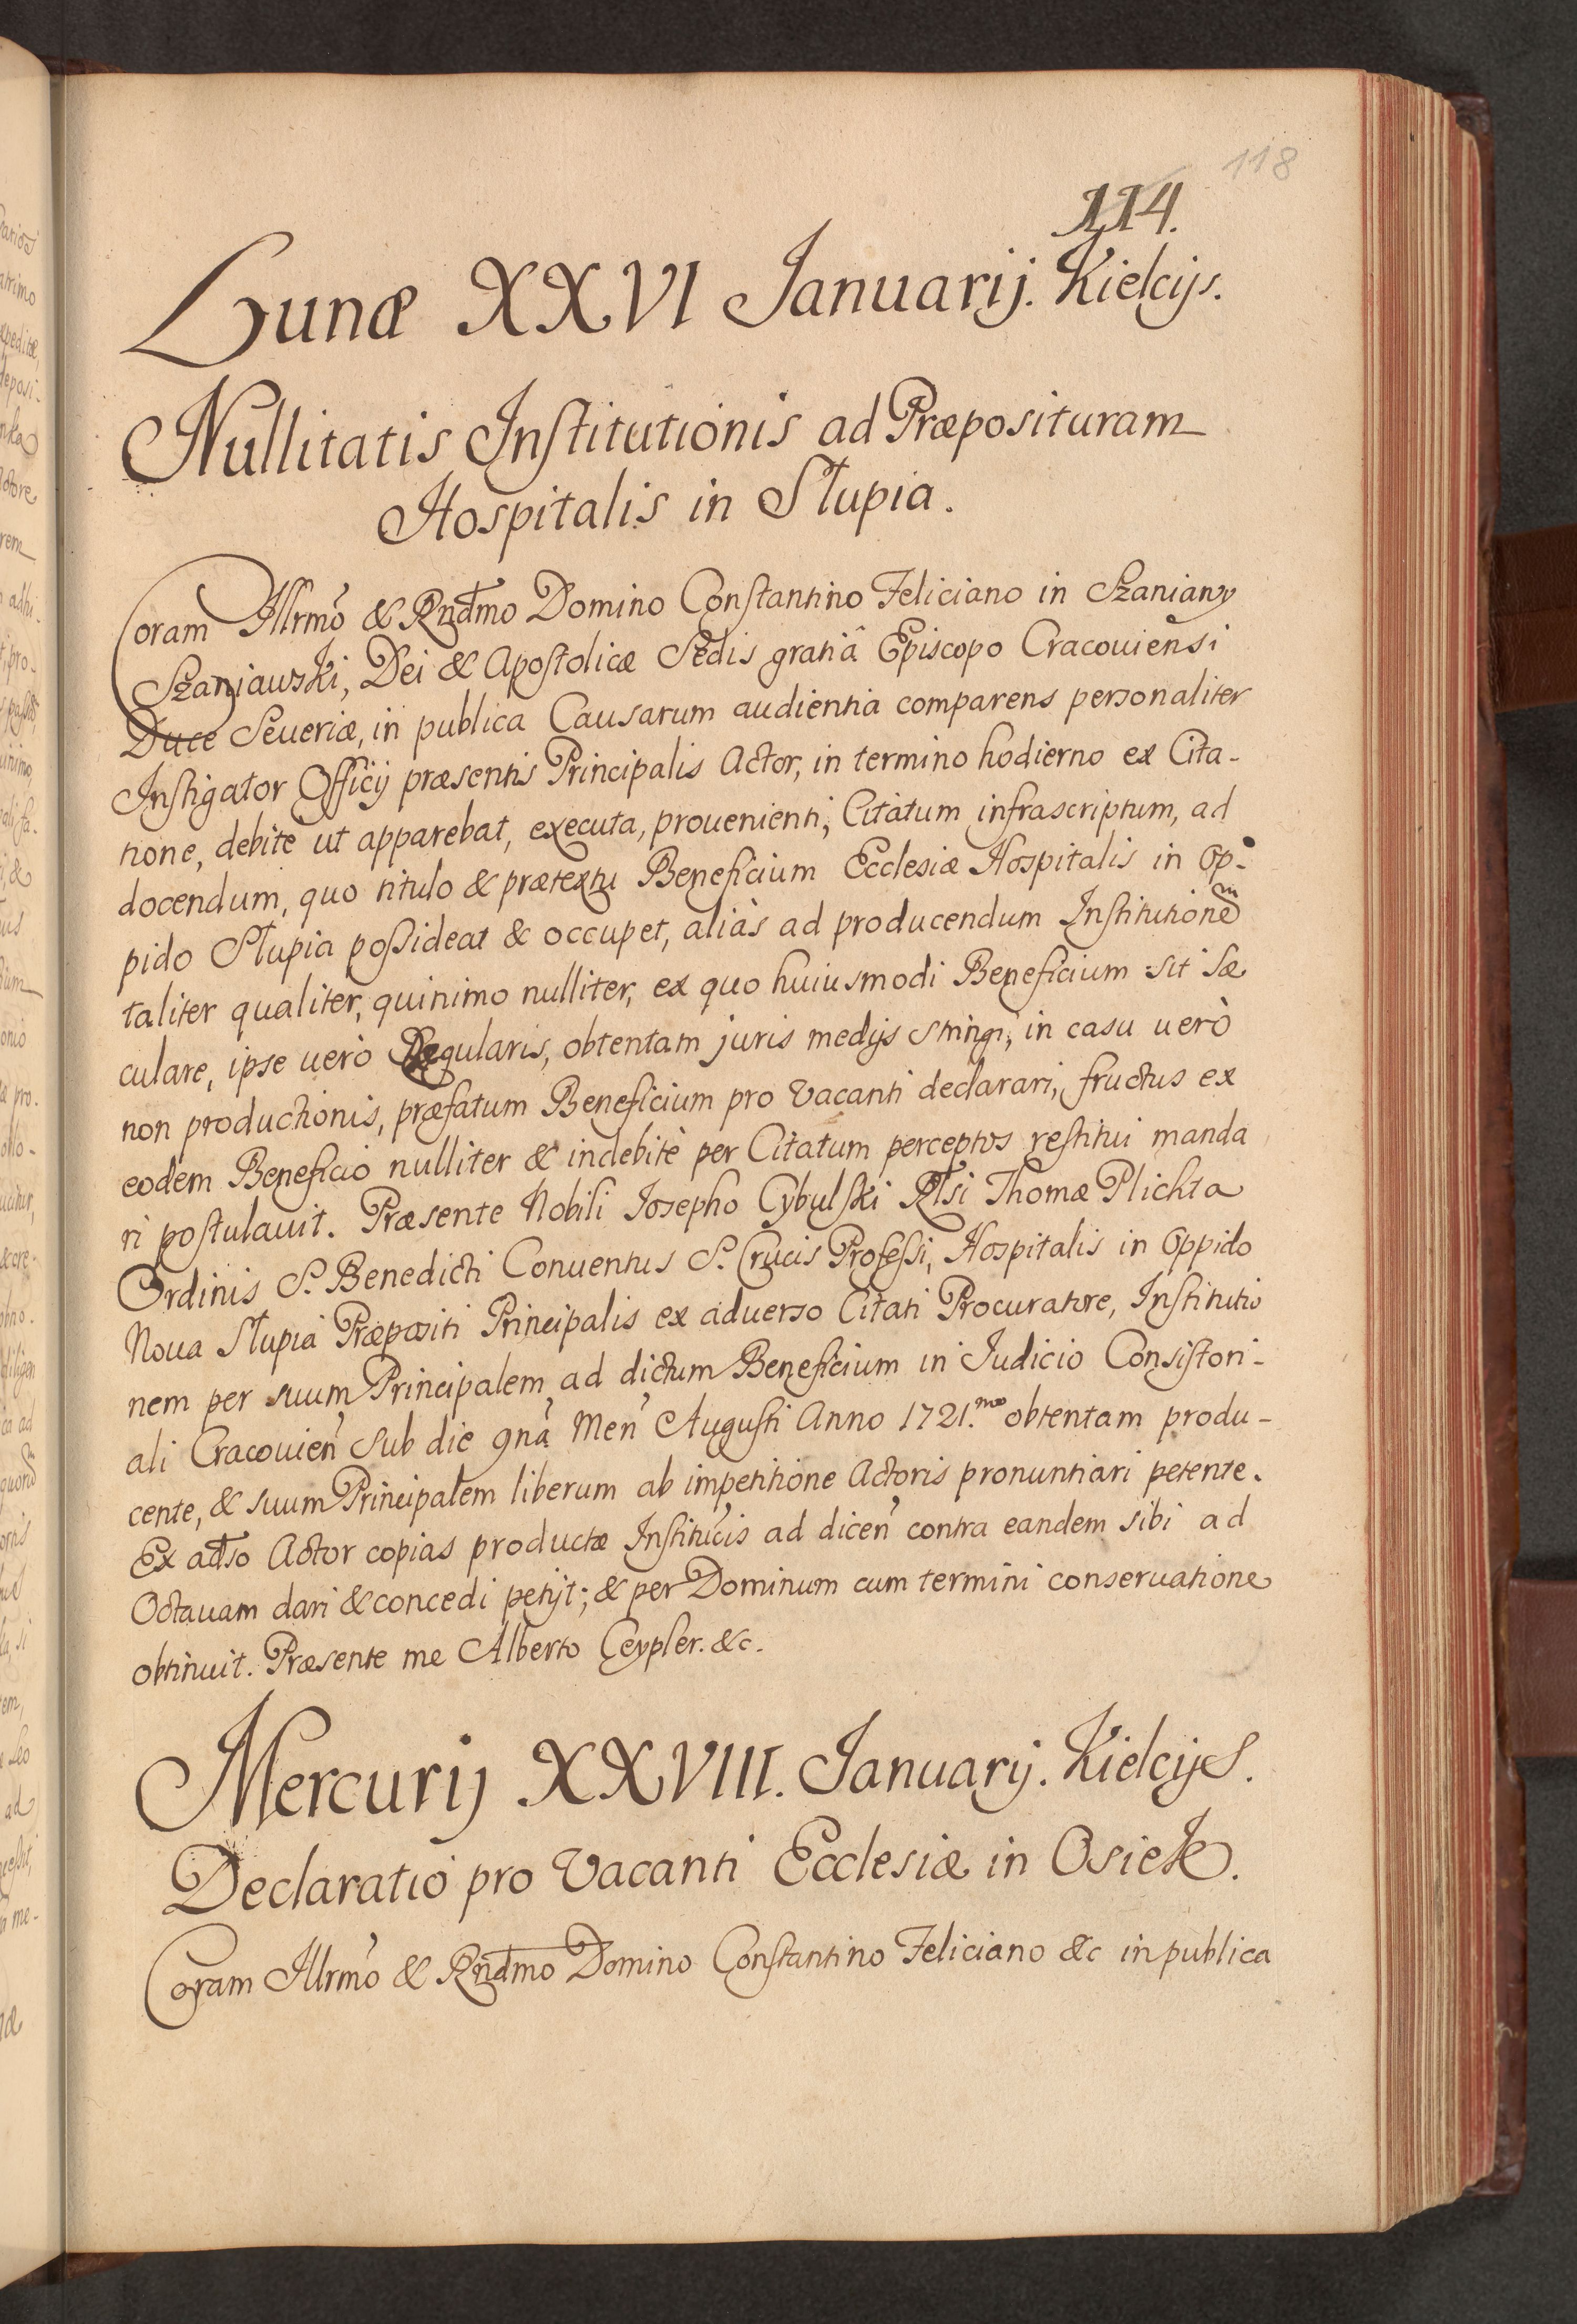 118
114.
Lunæ XXVI Januarij. Kielcijs.
Nullitatis Institutionis ad Præposituram
Hospitalis in Słupia.
Coram Illrmo & Rndmo Domino Constantino Feliciano in Szaniawy
Szaniawski, Dei & Apostolicæ Sedis gratiâ Episcopo Cracouiensi
Duce Seueriæ, in publica Causarum audientia comparens personaliter
Instigator Officij præsentis Principalis Actor, in termino hodierno ex Cita-
tione, debite ut apparebat, executa, prouenienti, Citatum infrascriptum, ad
docendum, quo titulo & prætextu Beneficium Ecclesiæ Hospitalis in Op-
pido Słupia possideat & occupet, aliàs ad producendum Institutionem
taliter qualiter, quinimo nulliter, ex quo huiusmodi Beneficium sit sæ
culare, ipse uerò Regularis, obtentam juris medijs stringi, in casu uerò
non productionis, præfatum Beneficium pro Vacanti declarari, fructus ex
eodem Beneficio nulliter & indebitè per Citatum perceptos restitui manda
ri postulauit. Præsente Nobili Iosepho Cybulski Rlsi Thomæ Plichta
Ordinis S. Benedicti Conuentus S. Crucis Professi, Hospitalis in Oppido
Noua Słupia Præpositi Principalis ex aduerso Citati Procuratore, Institutio
nem per suum Principalem ad dictum Beneficium in Judicio Consistori-
ali Cracouien sub die 9nâ Men Augusti Anno 1721.mo obtentam produ-
cente, & suum Principalem liberum ab impetitione Actoris pronuntiari petente.
Ex adso Actor copias productæ Institucis ad dicen contra eandem sibi ad
Octauam dari & concedi petijt; & per Dominum cum termini conseruatione
obtinuit. Præsente me Alberto Ceypler. &c.
Mercurij XXVIII. Januarij. Kielcijs.
Declaratio pro Vacanti Ecclesiæ in Osiek.
Coram Illrmo & Rndmo Domino Constantino Feliciano &c in publica